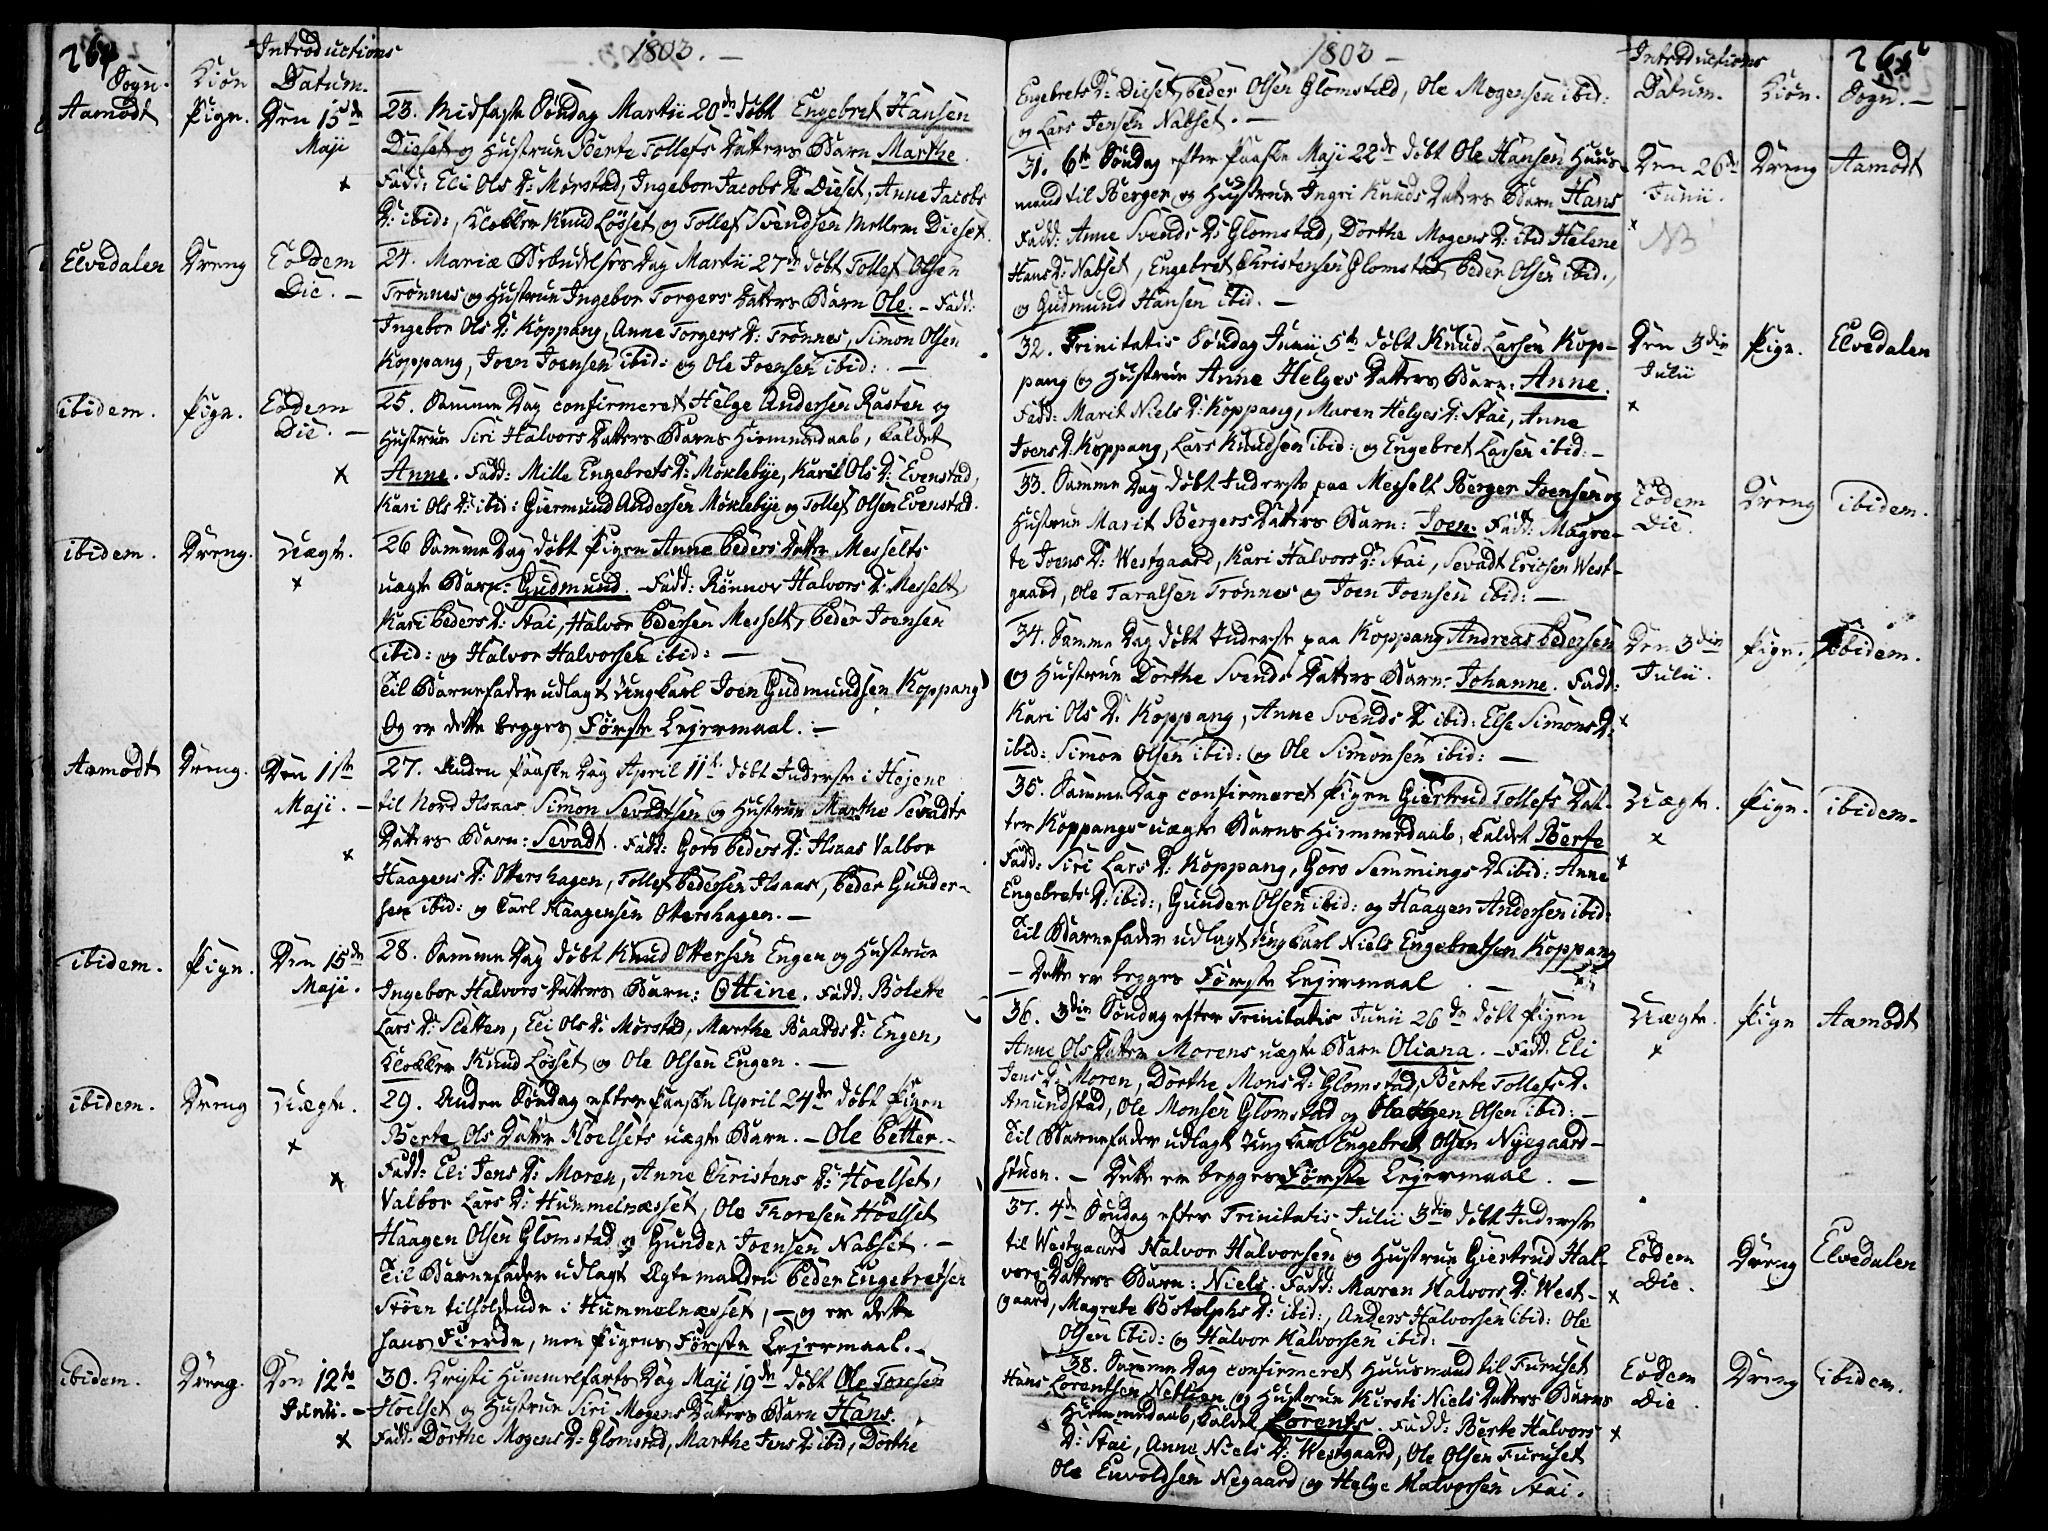 264
Introductions
1803. -
Sogn. Kiön Datum.
Aamodt Pige. Den 15de Maji
23. Midfaste Söndag Martii 20de döbt Engebret Hansen
Dieset og Hustrue Berte Tollefs Datters Barn Marthe.
Fadd: Eli Ols D: Mörstad, Ingebor Jacobs D: Dieset, Anne Jacobs
D: ibid:, Klokker Knud Lösset og Tollef Svendsen Mellem Dieset.
Elvedalen Dreng Eodem Die. -
24. Mariæ Bebudelses Dag Martii 27de döbt Tollef Olsen
Trönnes og Hustrue Ingebor Torgers Datters Barn Ole. - Fadd:
Ingebor Ols D: Koppang, Anne Torgers D: Trönnes, Simon Olsen
Koppang, Joen Joensen ibid: og Ole Joensen ibid: . -
ibidem. Pige. Eodem Die. -
25. Samme Dag confirmeret Helge Andersen Rasten og
Hustrue Siri Halvors Datters Barns Hiemmedaab, kaldet
Anne. Fadd: Mille Engebrets D: Möklebye, Kari Ols D: Evenstad,
Kari Ols D: ibid: Giermund Andersen Möklebye og Tollef Olsen Evenstad.
ibidem. Dreng. Uægte.
26 Samme Dag döbt Pigen Anne Peders Datter Messelts
uægte Barn: Gudmund. - Fadd: Rönnov Halvors D: Messelt
Kari Peders D: Stai, Halvor Pedersen Messelt, Peder Joensen
ibid: og Halvor Halvorsen ibid: -
Til Barnefader udlagt Ungkarl Joen Gudmundsen Koppang
Og er dette begges Förste Lejermaal. -
Aamodt Dreng. Den 11te Maji. -
27. Anden Paaske Dag April 11te döbt Inderste i Hejene
til Nord Ilsaas Simon Sevaldsen og Hustrue Marthe Sevadts
Datters Barn: Sevadt. Fadd: Goro Peders D: Ilsaas Valbor
Haagens D: Ottershagen, Tollef Pedersen Ilsaas, Peder Gunder-
sen ibid: og Carl Haagensen Ottershagen. -
ibidem. Pige. Den 15de Maji.
28. Samme Dag döbt Knud Ottersen Engen og Hustrue
Ingebor Halvors Datters Barn: Ottine. Fadd: Bolette
Lars D: Sletten, Eli Ols D: Mörstad, Marthe Baards D: Engen,
Klokker Knud Lösset og Ole Olsen Engen. -
ibidem. Dreng Uægte.
29. Anden Söndag efter Paaske April 24de döbt Pigen
Berte Ols Datter Hoelsets uægte Barn. - Ole Petter. -
Fadd: Eli Jens D: Moren, Anne Christens D: Hoelset,
Valbor Lars D: Hummelnæsset, Ole Thoresen Hoelset
Haagen Olsen Glomstad og Gunder Joensen Nabset. -
Til Barnefader udlagt Ægtemanden Peder Engebretsen
Stöen tilholdende i Hummelnæsset, - og er dette
hans Fierde, men Pigens Förste Lejermaal. -
ibidem. Dreng. Den 12te Junii. -
30. Kristi Himmelfarts Dag Maji 19de döbt Ole Toresen
Hoelset og Hustrue Siri Mogens Datters Barn Hans.
Fadd: Dorthe Mogens D: Glomstad, Marthe Jens D: ibid, Dorthe
1803 -
Introductions
265
Datum. Kiön. Sogn. -
Engebrets D: Dieset, Peder Olsen Glomstad, Ole Mogensen ibid:
og Lars Jensen Nabset. -
31. 6te Söndag efter Paaske Maji 22de döbt Ole Hansen Huus-
mand til Berger og Hustrue Ingri Knuds Datters Barn Hans
Fadd: Anne Svends D: Glomstad, Dorthe Mogens D: ibid Helene
Hans D: Nabset, Engebret Christensen Glomstad Peder Olsen ibid.,
og Gudmund Hansen ibid. -
Den 26de Junii. Dreng Aamodt
NB
32. Trinitatis Söndag Junii 5te döbt Knud Larsen Kop-
pang og Hustrue Anne Helges Datters Barn: Anne.
Fadd: Marit Niels D: Koppang, Maren Helges D: Stai, Anne
Joens D: Koppang, Lars Knudsen ibid: og Engebret Larsen ibid: -
Den 3die Julii Pige. Elvedalen
33. Samme Dag döbt Inderste paa Messelt Berger Joensen og
Hustrue Marit Bergers Datters Barn: Joen. Fadd: Magre-
te Joens D: Westgaard, Kari Halvors D: Stai, Sevadt Ericsen West-
gaard, Ole Taralsen Trönnes og Joen Joensen ibid: -
Eodem Die. Dreng ibidem.
34. Samme Dag döbt Inderste paa Koppang Andreas Pedersen
og Hustrue Dorthe Svends Datters Barn: Johanne. Fadd:
Kari Ols D: Koppang, Anne Svends D: ibid: Else Simons D:
ibid: Simon Olsen ibid: og Ole Simonsen ibid: -
Den 3die Julii. Pige. ibidem.
35. Samme Dag confirmeret Pigen Giertrud Tollefs Dat-
ter Koppangs uægte Barns Hiemmedaab, kaldet Berte
Fadd: Siri Lars D: Koppang, Goro Semmings D: ibid: Anne
Engebrets D: ibid:, Gunder Olsen ibid: og Haagen Andersen ibid:
Til Barnefader udlagt Ungkarl Niels Engebretsen Koppang
- Dette er begges Förste Lejermaal . -
Uægte. Pige. ibidem. -
36. 3die Söndag efter Trinitatis Junii 26de döbt Pigen
Anne Ols Datter Morens uægte Barn Oliana. - Fadd: Eli
Jens D: Moren, Dorthe Mons D: Glomstad, Berte Tollefs D:
Amundstad, Ole Monsen Glomstad og Olsen ibid: -
Til Barnefader udlagt Ungkarl Engebret Olsen Nyegaard-
stuen. - Dette er begges Förste Lejermaal. -
Uægte. Pige Aamodt
37. 4de Söndag efter Trinitatis Julii 3die döbt Inderste
til Westgaard Halvor Halvorsen og Hustrue Giertrud Hal-
vors Datters Barn: Niels. Fadd: Maren Halvors D: West-
gaard, Magrete Botolphs D: ibid:, Anders Halvorsen ibid: Ole
Olsen ibid: og Halvor Halvorsen ibid: -
Eodem Die. Dreng Elvedalen
38. Samme Dag confirmeret Huusmand til Furuset
Hans Lorentsen Nettoen og Hustrue Kirsti Niels Datters Barns
Hiemmedaab, kaldet Lorents. Fadd: Berte Halvors
D: Stai, Anne Niels D: Westgaard, Ole Olsen Furuset
Ole Envoldsen Negaard og Helge Halvorsen Stai.
Eodem Die. Dreng ibidem.